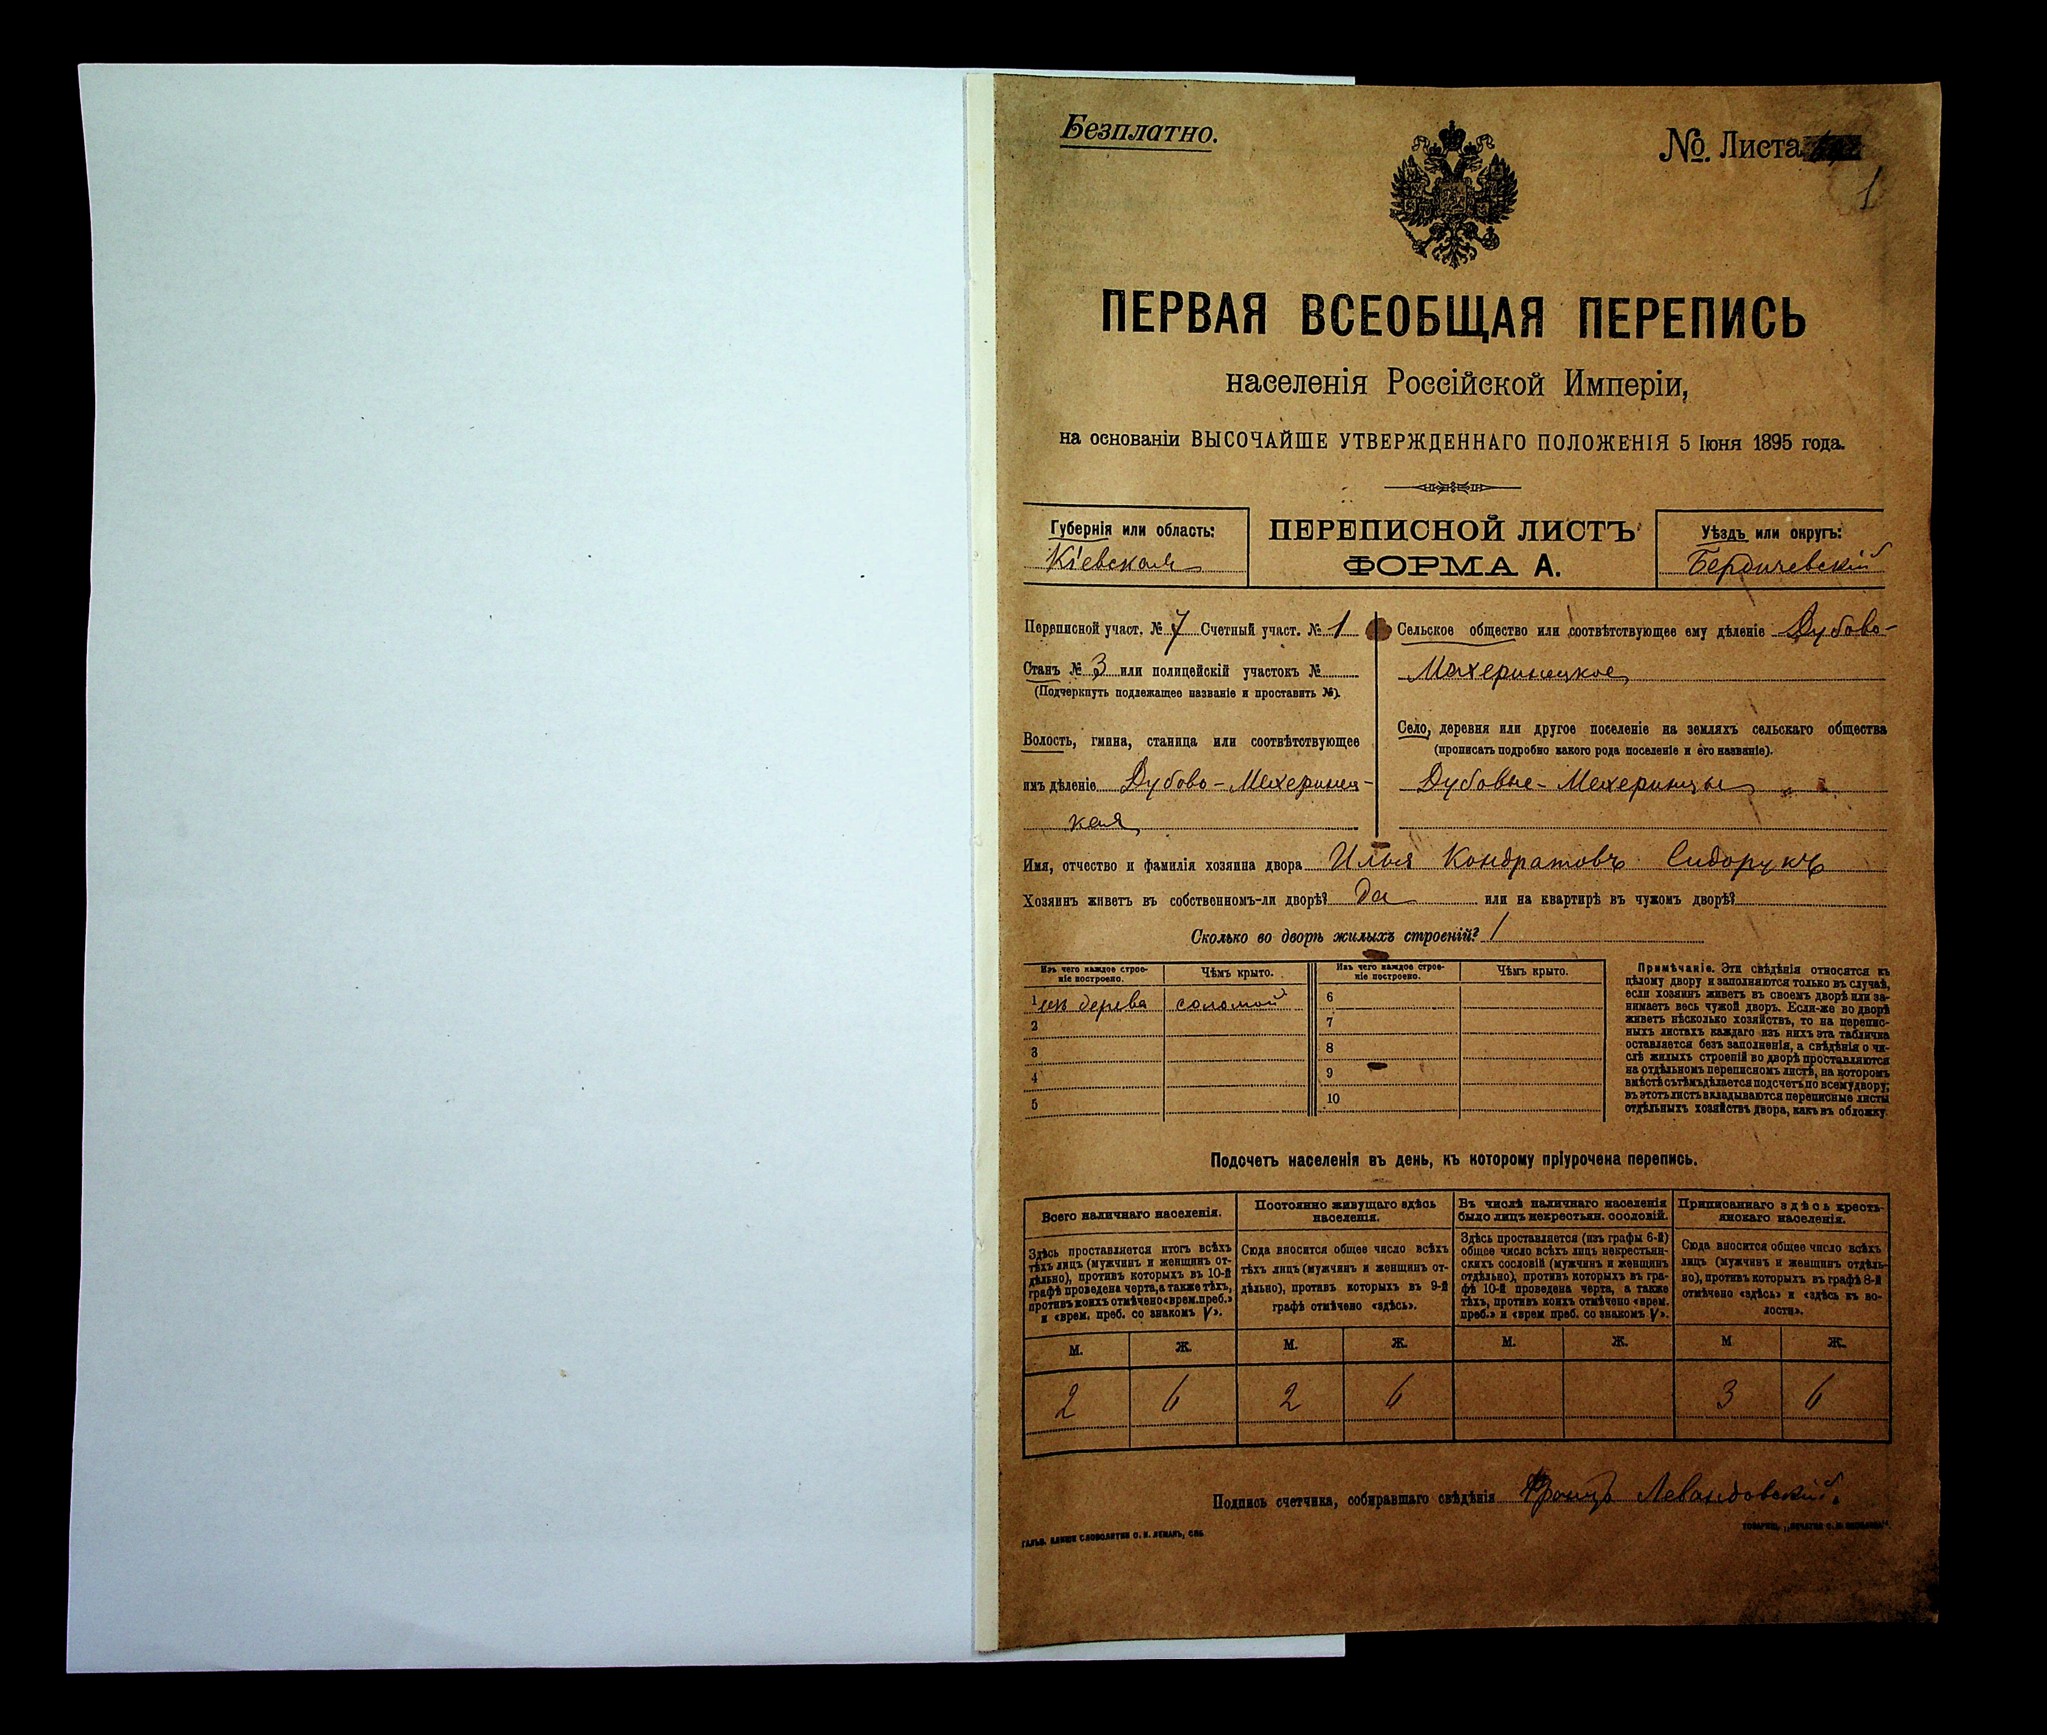 Безплатно.
№. Листа
1
ПЕРВАЯ ВСЕОБЩАЯ ПЕРЕПИСЬ
населенія Россійской Имперіи,
на основаніи ВЫСОЧАЙШЕ УТВЕРЖДЕННАГО ПОЛОЖЕНІЯ 5 Іюня 1895 года.
Губернія или область:
Кіевская
ПЕРЕПИСНОЙ ЛИСТЪ
ФОРМА А.
Уѣздъ или округъ:
Бердичевскій
Переписной участ. № 7 Счетный участ. № 1
Станъ № 3 или полицейскій участокъ №
(Подчеркнуть подлежащее названіе и проставить №).
Волость, гмина, станица или соотвѣтствующее
имъ дѣленіе Дубово-Махеринец-
кая
Сельское общество или соотвѣтствующее ему дѣленіе Дубово-
Махеринецкое
Село, деревня или другое поселеніе на земляхъ сельскаго общества
(прописать подробно какого рода поселеніе и его названіе).
Дубовые-Махеринцы
Имя, отчество и фамилія хозяина двора Илья Кондратовъ Сидорукъ
Хозяинъ живетъ въ собственномъ-ли дворѣ? Да или на квартирѣ въ чужомъ дворѣ?
Сколько во дворѣ жилыхъ строеній? 1
Изъ чего каждое строе-
ніе построено.
Чѣмъ крыто.
Изъ чего каждое строе-
ніе построено.
Чѣмъ крыто.
1 изъ дерева соломой 6
2 7
3 8
4 9
5 10
Примѣчаніе. Эти свѣдѣнія относятся къ
цѣлому двору и заполняются только въ случаѣ,
если хозяинъ живетъ въ своемъ дворѣ или за-
нимаетъ весь чужой дворъ. Если-же во дворѣ
живетъ нѣсколько хозяйствъ, то на перепис-
ныхъ листахъ каждаго изъ нихъ эта табличка
оставляется безъ заполненія, а свѣдѣнія о чи-
слѣ жилыхъ строеній во дворѣ проставляются
на отдѣльномъ переписномъ листѣ, на которомъ
вмѣстѣ съ тѣмъ дѣлается подсчетъ по всему двору;
въ этотъ листъ вкладываются переписные листы
отдѣльныхъ хозяйствъ двора, какъ въ обложку.
Подсчетъ населенія въ день, къ которому пріурочена перепись.
Всего наличнаго населенія.
Постоянно живущаго здѣсь
населенія.
Въ числѣ наличнаго населенія
было лицъ некрестьян. сословій.
Приписаннаго здѣсь кресть-
янскаго населенія.
Здѣсь проставляется итогъ всѣхъ
тѣхъ лицъ (мужчинъ и женщинъ от-
дѣльно), противъ которыхъ въ 10-й
графѣ проведена черта, а также тѣхъ,
противъ коихъ отмѣчено «врем. преб.»
и «врем. преб. со знакомъ V».
Сюда вносится общее число всѣхъ
тѣхъ лицъ (мужчинъ и женщинъ от-
дѣльно), противъ которыхъ въ 9-й
графѣ отмѣчено «здѣсь».
Здѣсь проставляется (изъ графы 6-й)
общее число всѣхъ лицъ некрестьян-
скихъ сословій (мужчинъ и женщинъ
отдѣльно), противъ которыхъ въ гра-
фѣ 10-й проведена черта, а также
тѣхъ, противъ коихъ отмѣчено «врем.
преб.» и «врем преб. со знакомъ V».
Сюда вносится общее число всѣхъ
лицъ (мужчинъ и женщинъ отдѣль-
но), противъ которыхъ въ графѣ 8-й
отмѣчено «здѣсь» и «здѣсь къ во-
лости».
М. Ж. М. Ж. М. Ж. М Ж.
2 6 2 6 3 6
Подпись счетчика, собиравшаго свѣдѣнія Францъ Левандовскій.
ГАЛЬВ. КЛИШЕ СЛОВОЛИТНИ О. И. ЛЕМАНЪ, СПБ.